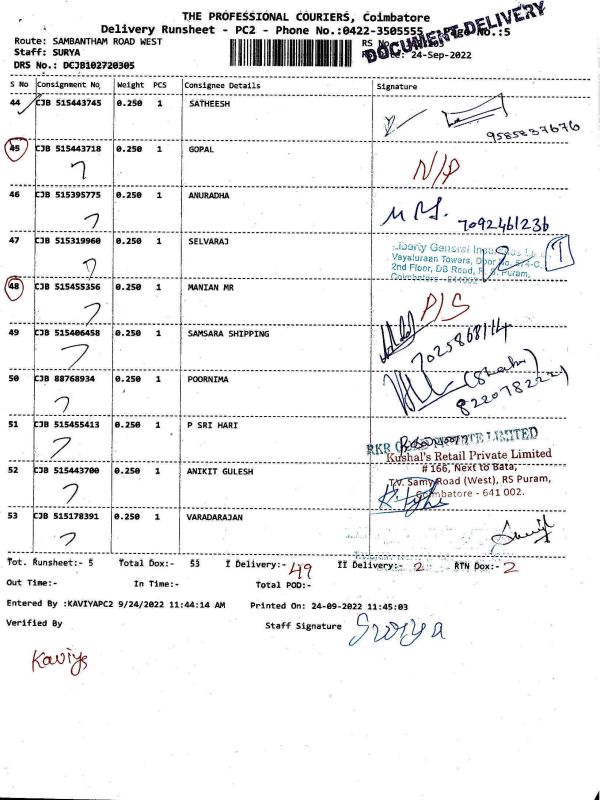 THE PROFESSIONAL COURIERS, Coimbatore
Delivery Runsheet - PC2 - Phone No.:0422-3505555 No.:5
DOCUMENT DELIVERY
Route: SAMBANTHAM ROAD WEST
Staff: SURYA 24-Sep-2022
DRS No.: DCJB102720305
S No Consignment No Weight PCS Consignee Details Signature
44 CJB 515443745 0.250 1 SATHEESH
9585837676
45 CJB 515443718 0.250 1 GOPAL
N/P
46 CJB 515395775 0.250 1 ANURADHA
7092461236
47 CJB 515319960 0.250 1 SELVARAJ
Liberty General
Vayaluraan Towers, Door
2nd Floor, DB Road, R. S. Puram,
Coimbatore - 641002
48 CJB 515455356 0.250 1 MANIAN MR
P/S
49 CJB 515406458 0.250 1 SAMSARA SHIPPING
50 CJB 88768934 0.250 1 POORNIMA
51 CJB 515455413 0.250 1 P SRI HARI
RKR LIMITED
Kushal's Retail Private Limited
# 166, Next to Bata,
T.V. Samy Road (West), RS Puram,
Coimbatore - 641 002.
52 CJB 515443700 0.250 1 ANIKIT GULESH
53 CJB 515178391 0.250 1 VARADARAJAN
Tot. Runsheet:- 5 Total Dox:- 53 I Delivery:- 49 II Delivery:- 2 RTN Dox:- 2
Out Time:- In Time:- Total POD:-
Entered By :KAVIYAPC2 9/24/2022 11:44:14 AM Printed On: 24-09-2022 11:45:03
Verified By Staff Signature Surya
Kaviya